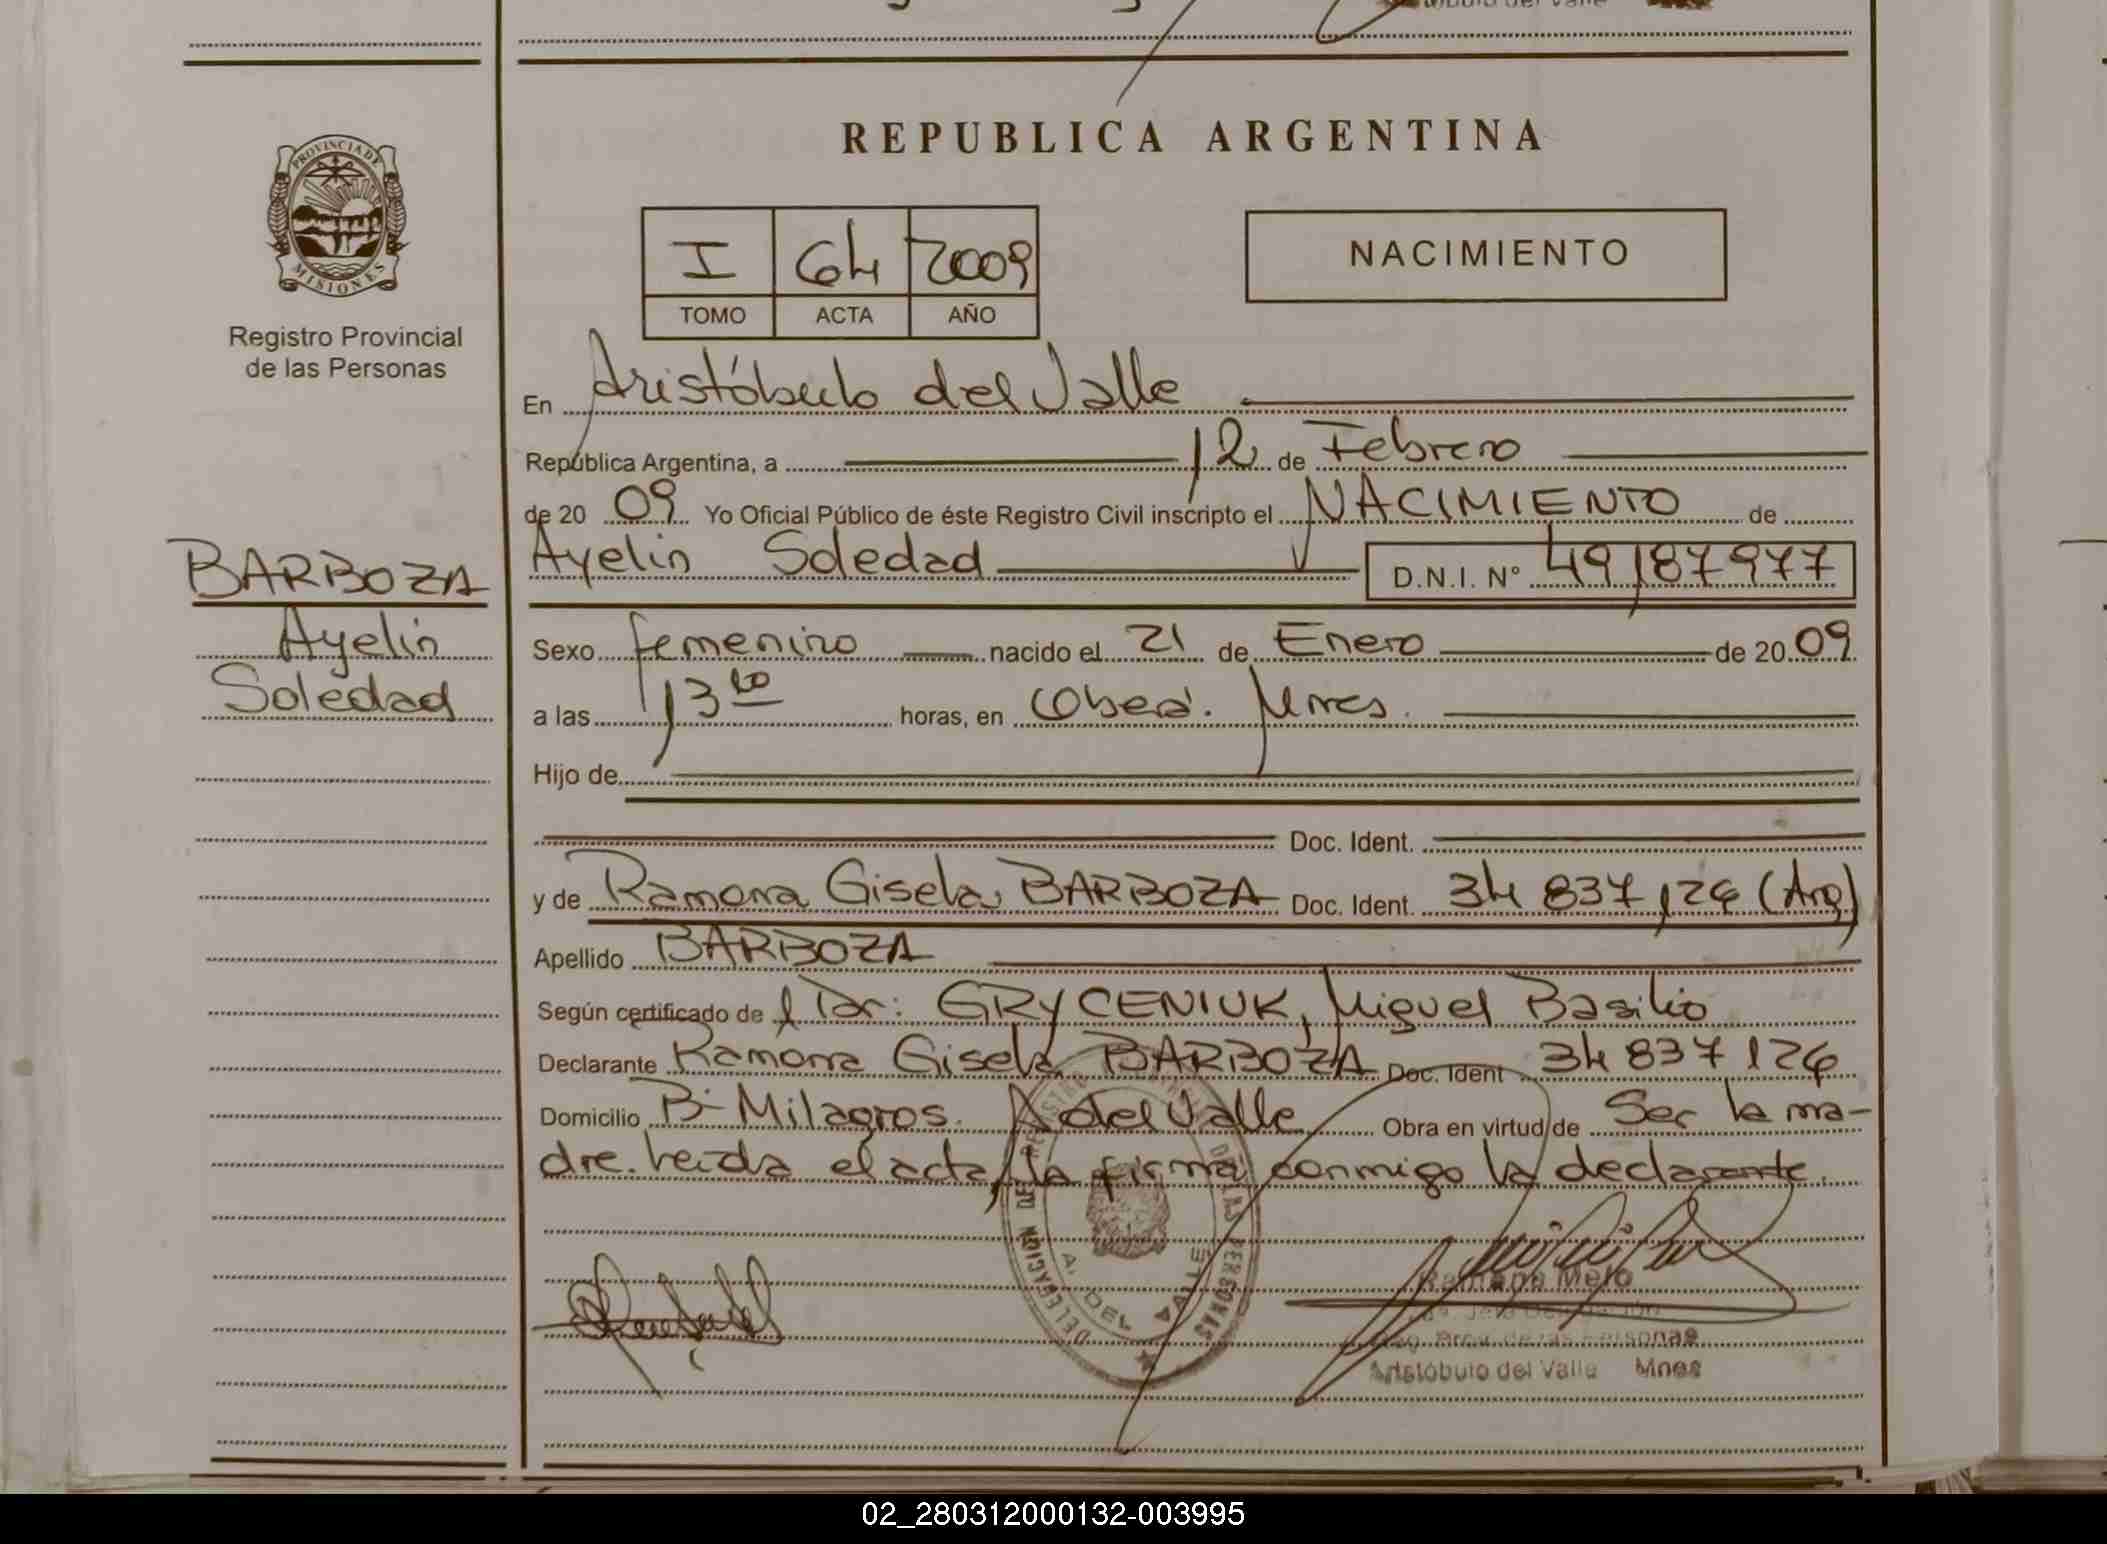 REPUBLICA ARGENTINA
PROVINCIA DE MISIONES
Registro Provincial
de las Personas
I 64 2009
TOMO ACTA AÑO
NACIMIENTO
En Aristóbulo del Valle
República Argentina, a 12 de Febrero
de 20 09 Yo Oficial Público de éste Registro Civil inscripto el NACIMIENTO de
Ayelin Soledad D.N.I. Nº 49187977
BARBOZA
Ayelin
Soledad
Sexo femenino nacido el 21 de Enero de 20 09
a las 13 horas, en Oberá. Mnes.
Hijo de
Doc. Ident.
y de Ramona Gisela BARBOZA Doc. Ident. 34 837 126 (Arg)
Apellido BARBOZA
Según certificado de l Dr: GRYCENIUK, Miguel Basilio
Declarante Ramona Gisela BARBOZA Doc. Ident 34 837 126
Domicilio Bº Milagros. A del Valle Obra en virtud de Ser la ma-
dre. Leida el acta, la firma conmigo la declarante.
DELEGACION DEL REGISTRO DE LAS PERSONAS
A. DEL VALLE
Ramona Melo
de las Personas
Aristóbulo del Valle Mnes
02_280312000132-003995